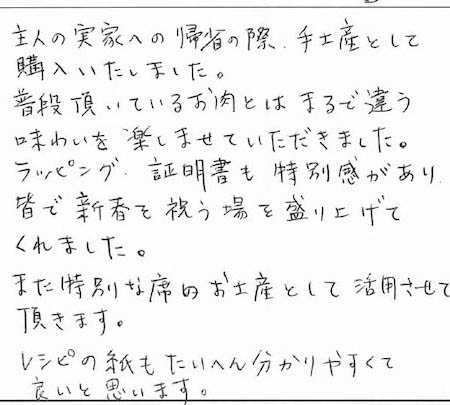 主人の実家への帰省の際、手土産として
購入いたしました。
普段頂いているお肉とはまるで違う
味わいを楽しませていただきました。
ラッピング、証明書も特別感があり、
皆で新春を祝う場を盛り上げて
くれました。
また特別な席のお土産として活用させて
頂きます。
レシピの紙もたいへん分かりやすくて
良いと思います。